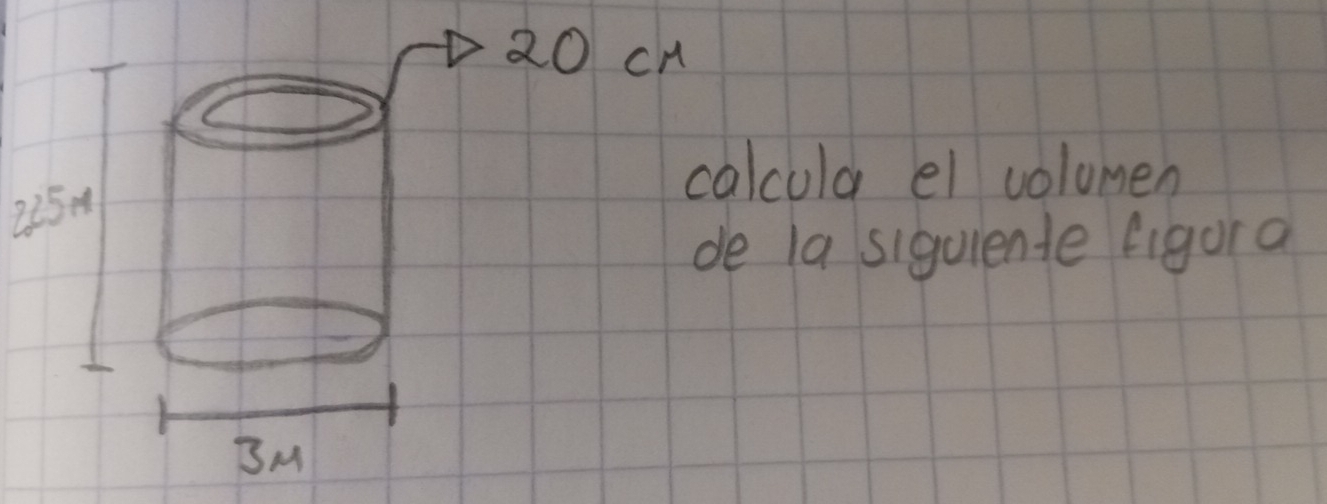 20 cm
calcula el volumen
de la siguiente figura
3m